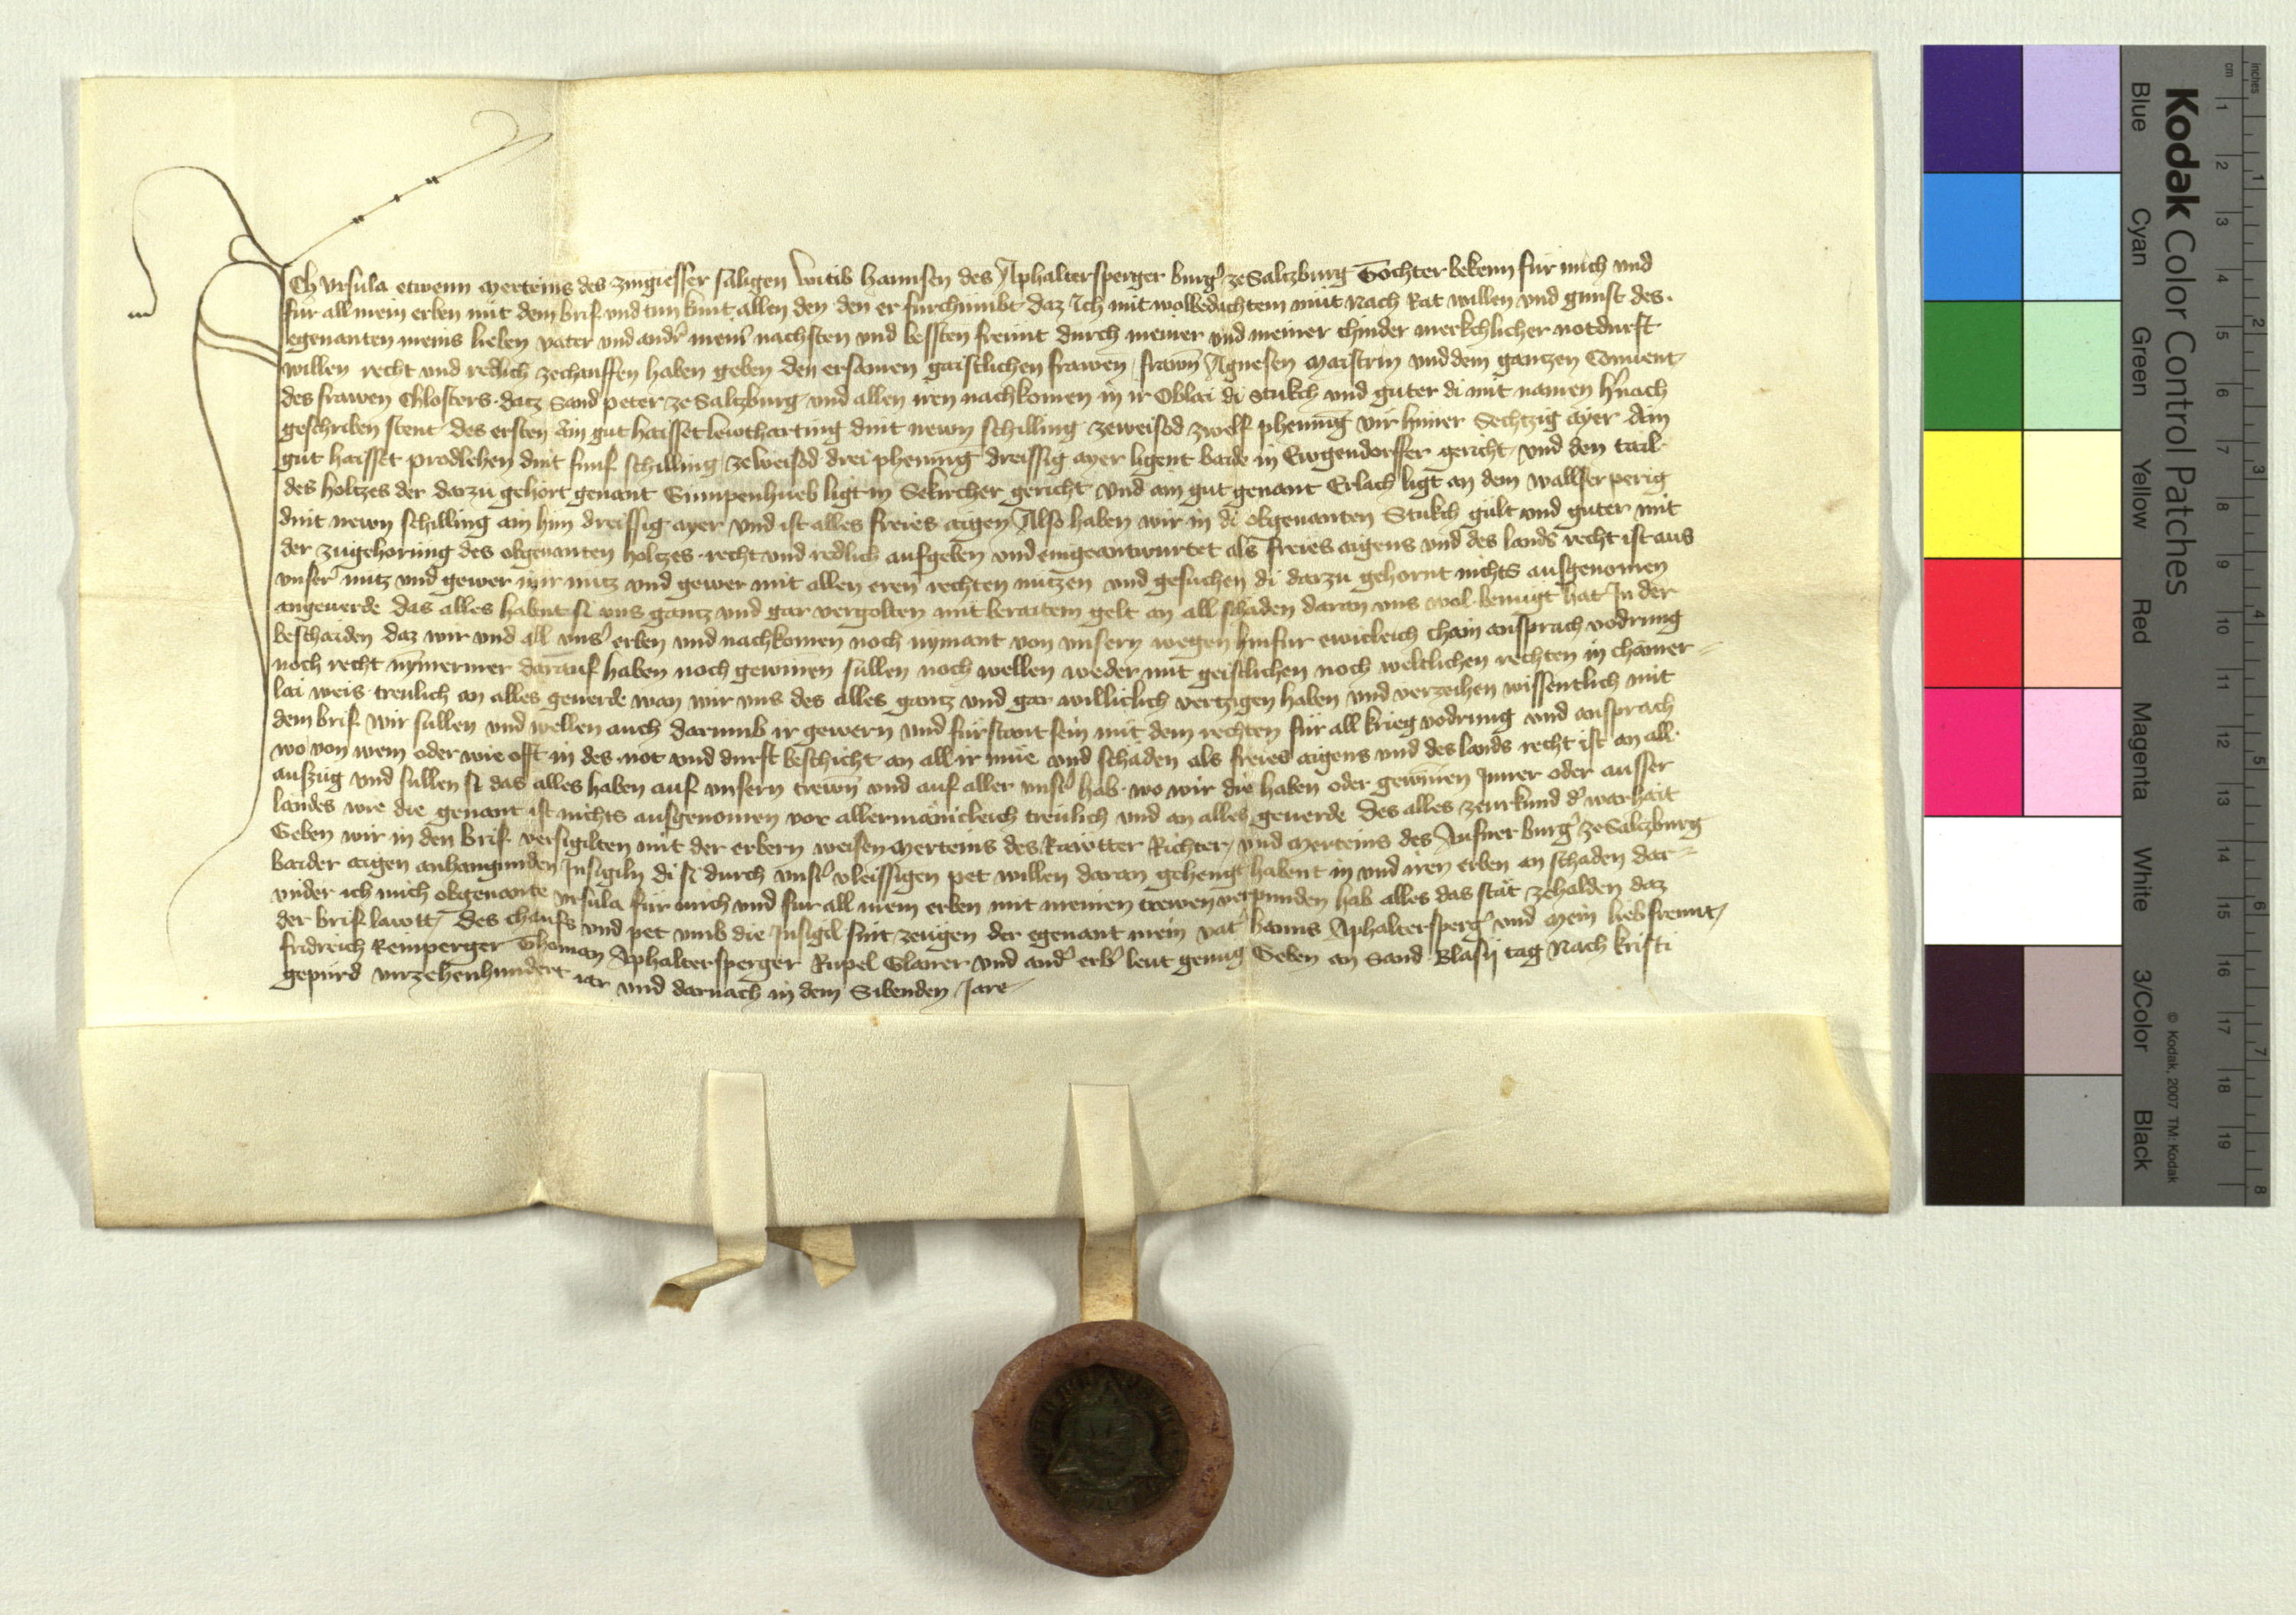 Ich Ursula etwenn Merteins des zingiesser säligen witib hannsen des Aphaltersperger burgʼ ze Saltzburg Tochter bekenn für mich und
für all mein erben mit dem brif und tun kunt allen den den er fürchümbt daz Ich mit wolbedachtem müt Nach Rat willen und gunst des
egenanten meins lieben vater und andʼ meinʼ nachsten und bessten freunt durch meiner und meiner chinder merkchlicher notdurft
willen recht und redlich ze chauffen haben geben den ersamen gaistlichen frawen frawn Agnesen Maistrin und dem gantzen Convent
des frawen Chlosters datz Sand peter ze Saltzburg und allen iren nachkomen in ir Oblai di Stukch und guter di mit namen hʼnach
geschriben stent des ersten Ain gut haisset lewthartung dint newn schilling zeweisod zwelf phening vir hüner Sechtzig ayer Ain
gut haisset prodlehen dint fünf schilling zeweisod drei phening dreissig ayer ligent baide in Ewgendorffer gericht und den tail
des holtzes der darzu gehört genant Gumpenhueb ligt in Sekircher gericht und ain gut genant Erlach ligt an dem wallser perig
dint newn schilling ain hün dreissig ayer und ist alles freies aigen Also haben wir in di obgenanten Stukch gult und guter mit
der zugehorung des obgenanten holtzes recht und redlich aufgeben und eingeantwurtet als freies aigens und des lands recht ist aus
unserʼ nutz und gewer in ir nutz und gewer mit allen eren rechten nutzen und gesuchen di darzu gehornt nichts ausgenomen
angeverde das alles habent si uns gantz und gar vergolten mit beraitem gelt an all schaden daran uns wol benugt hat In der
beschaiden daz wir und all unsʼ erben und nachkomen noch nymant von unsern wegen hinfur ewicleich chain ansprach vodrung
noch recht nymermer darauf haben noch gewinnen sullen noch wellen weder mit geistlichen noch weltlichen rechten in chainer-
lai weis treulich an alles geverde wan wir uns des alles gantz und gar williclich vertzigen haben und verzeihen wissentlich mit
dem brif wir sullen und wellen auch darumb ir gewern und fürstant sein mit dem rechten für all krieg vodrung und ansprach
wo von wem oder wie offt in des not und durft beschicht an all ir müe und schäden als freies aigens und des lands recht ist an all
auszug und sullen si das alles haben auf unsern trewn und auf aller unsʼ hab wo wir die haben oder gewinnen Inner oder ausser
landes wie die genant ist nichts ausgenomen vor allermänicleich treulich und an alles geverde Des alles ze urkund dʼ warhait
Geben wir in den brif versigilten mit der erbern weisen Merteins des Richter und Merteins des Aufner burgʼ ze Saltzburg
baider aigen anhangunden Insigiln di si durch unsʼ vleissigen pet willen daran gehengt habent in und iren erben an schaden dar-
under ich mich obgenante Ursula für mich und für all mein erben mit meinen trewen verpunden hab alles das stät ze halden daz
der brif lawtt Des chaufs und pet umb die Insigil sint zeugen der egenant mein vatʼ hanns Aphalterspergʼ und mein lieb freunt
fridreich Reinperger Thoman Aphaltersperger Rupel Glaner und andʼ erbʼ leut genug Geben an Sand Blasij tag Nach kristi
gepurd virzehenhundert iar und darnach in dem Sibenden Jare
Kodak Color Control Patches
Blue Cyan Green Yellow Red Magenta White 3/Color Black
© Kodak, 2007 TM: Kodak
cm 1 2 3 4 5 6 7 8 9 10 11 12 13 14 15 16 17 18 19
inches 1 2 3 4 5 6 7 8